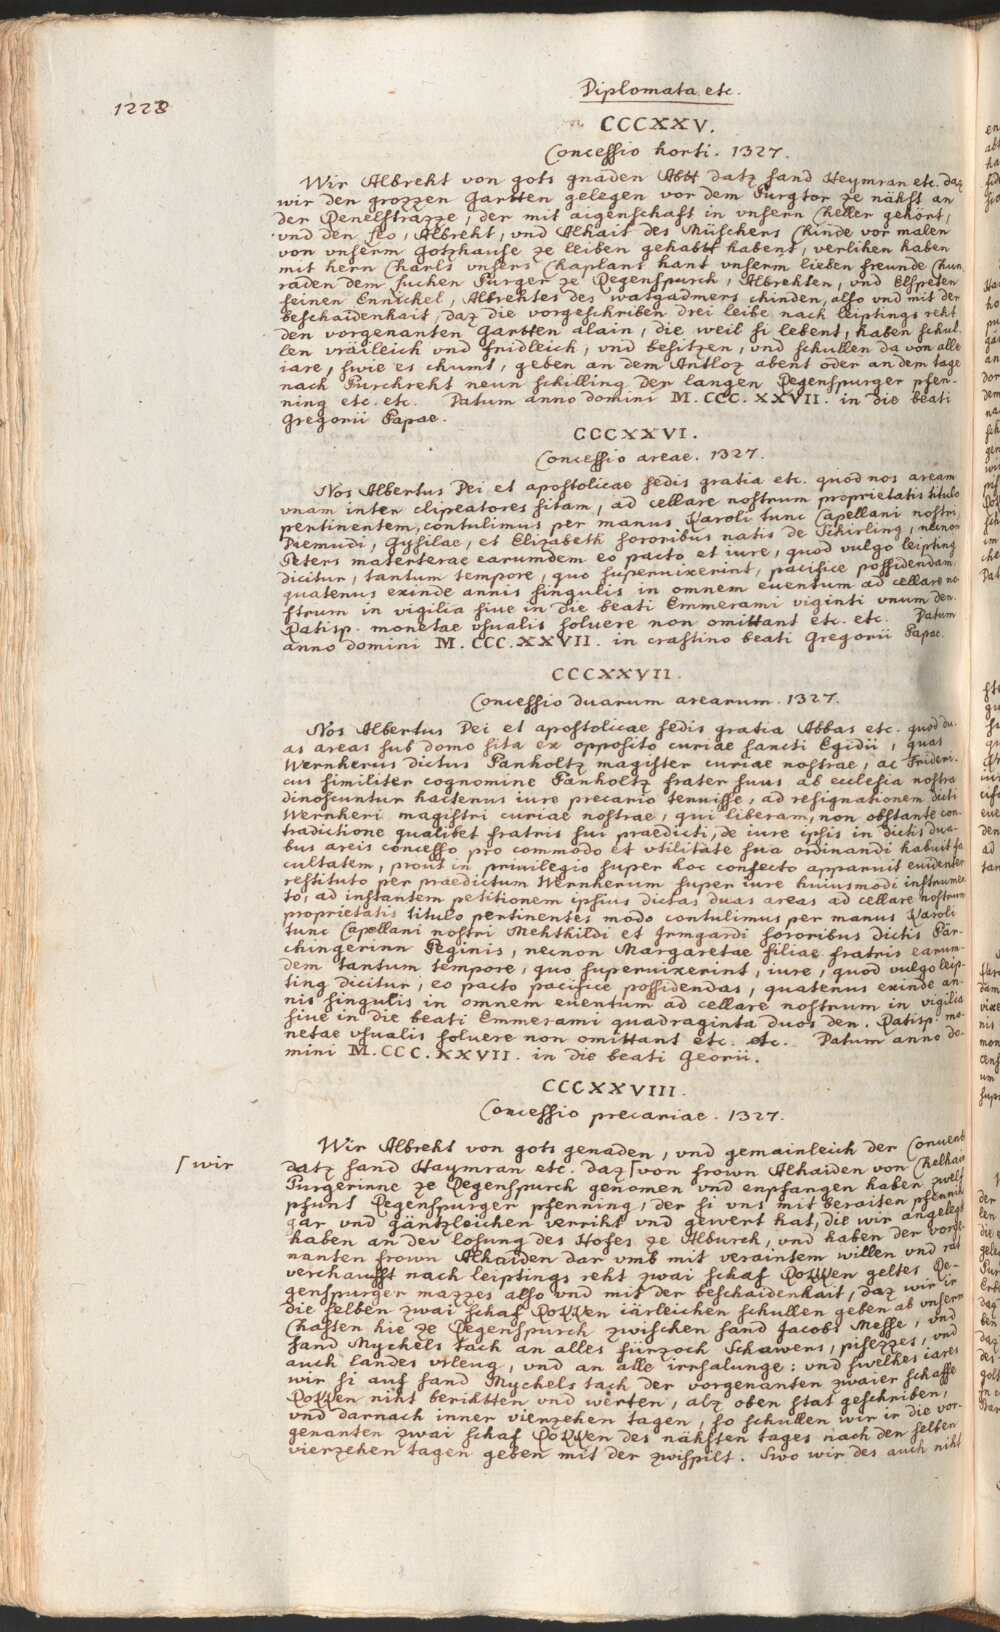 Diplomata etc.
1228
CCCXXV.
Concessio horti. 1327.
Wir Albreht von gots gnaden Abtt datz sand Heymran etc. daz
wir den grozzen Gartten gelegen vor dem Purgtor ze nähst an
der Penelstrazze, der mit aigenschaft in vnsern Cheller gehört,
vnd den Leo, Albreht, vnd Alhait des Müschers Chinde vor malen
von vnserm gotzhause ze leiben gehabtt habent, verlihen haben
mit hern Charls vnsers Chaplans hant vnserm lieben freunde Chun
raden dem Zuchen Purger ze Regenspurch, Albrehten, vnd Elspeten
seinen Ennichel, Albrehtes des watgadmers chinden, also vnd mit der
beschaidenhait, daz die vorgeschriben drei leibe nach leiptings reht
den vorgenanten Gartten alain, die weil si lebent, haben schul-
len vräileich vnd fridleich, vnd besitzen, vnd schullen da von alle
iare, swie es chumt, geben an dem Antloz abent oder an dem tage
nach Purchreht neun schilling der langen Regenspurger phen-
ning etc. etc. Datum anno domini M.CCC.XXVII. in die beati
Gregorii Papae.
CCCXXVI.
Concessio areae. 1327.
Nos Albertus Dei et apostolicae sedis gratia etc. quod nos aream
vnam inter clipeatores sitam, ad cellare nostrum proprietatis titulo
pertinentem, contulimus per manus Karoli tunc Capellani nostri,
Diemudi, Gysilae, et Elizabeth sororibus natis de Schirling, necnon
Peters materterae earumdem eo pacto et iure, quod vulgo leipting
dicitur, tantum tempore, quo superuixerint, pacifice possidendam,
quatenus exinde annis singulis in omnem euentum ad cellare no-
strum in vigilia siue in die beati Emmerami viginti vnum den.
Ratisp. monetae vsualis soluere non omittant etc. etc. Datum
anno domini M.CCC.XXVII. in crastino beati Gregorii Papae.
CCCXXVII.
Concessio duarum arearum. 1327.
Nos Albertus Dei et apostolicae sedis gratia Abbas etc. quod du-
as areas sub domo sita ex opposito curiae sancti Egidii, quas
Wernherus dictus Panholtz magister curiae nostrae, ac Frideri-
cus similiter cognomine Panholtz frater suus ab ecclesia nostra
dinoscuntur hactenus iure precario tenuisse, ad resignationem dicti
Wernheri magistri curiae nostrae, qui liberam, non obstante con-
tradictione qualibet fratris sui praedicti, de iure ipsis in dictis dua-
bus areis concesso pro commodo et vtilitate sua ordinandi habuit fa-
cultatem, prout in priuilegio super hoc confecto apparuit euidenter
restituto per praedictum Wernherum super iure huiusmodi instrumen
to, ad instantem petitionem ipsius dictas duas areas ad cellare nostrum
proprietatis titulo pertinentes modo contulimus per manus Karoli
tunc Capellani nostri Mehthildi et Irmgardi sororibus dictis Pär-
chingerinn Peginis, necnon Margaretae filiae fratris earum-
dem tantum tempore, quo superuixerint, iure, quod vulgo leip-
ting dicitur, eo pacto pacifice possidendas, quatenus exinde an-
nis singulis in omnem euentum ad cellare nostrum in vigilia
siue in die beati Emmerami quadraginta duos den. Ratisp. mo-
netae vsualis soluere non omittant etc. etc. Datum anno do-
mini M.CCC.XXVII. in die beati Georii.
CCCXXVIII.
Concessio precariae. 1327.
Wir Albreht von gots genaden, vnd gemainleich der Conuent
datz sand Haymran etc. daz ⌈von frown Alhaiden von Chelhaim
⌈wir
Purgerinne ze Regenspurch genomen vnd enpfangen haben zwelf
phunt Regenspurger phenning, der si vns mit beraiten phenning
gar vnd gäntzleichen verriht vnd gewert hat, die wir angelegt
haben an dev losung des Hofes ze Alburch, vnd haben der vorge-
nanten frown Alhaiden dar vmb mit veraintem willen vnd rat
verchaufft nach leiptings reht zwai schaf Rokken geltes Re-
genspurger mazzes also vnd mit der beschaidenhait, daz wir ir
die selben zwai schaf Rokken iärleichen schullen geben ab vnserm
Chasten hie ze Regenspurch zwischen sand Jacobs Messe, vnd
sand Mychels tach an alles fürzoch Schawers, pisezzes, vnd
auch landes vrleug, vnd an alle irrsalunge: vnd swelhes iares
wir si auf sand Mychels tach der vorgenanten zwaier schaffe
Rokken niht berihtten vnd werten, alz oben stat geschriben,
vnd darnach inner vierzehen tagen, so schullen wir ir die vor-
genanten zwai schaf Rokken des nähsten tages nach den selben
vierzehen tagen geben mit der zwispilt. Swo wir des auch niht